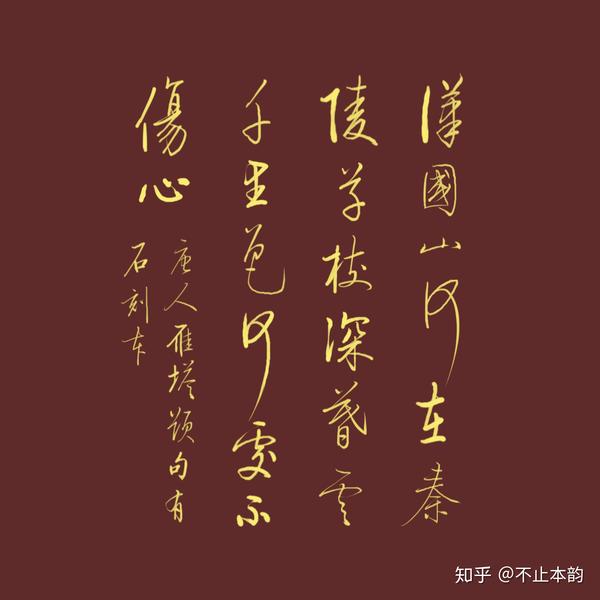 漢國山河在秦
陵草樹深暮雲
千里色何處不
傷心
唐人雁塔題句有
石刻本
知乎 @不止本韵